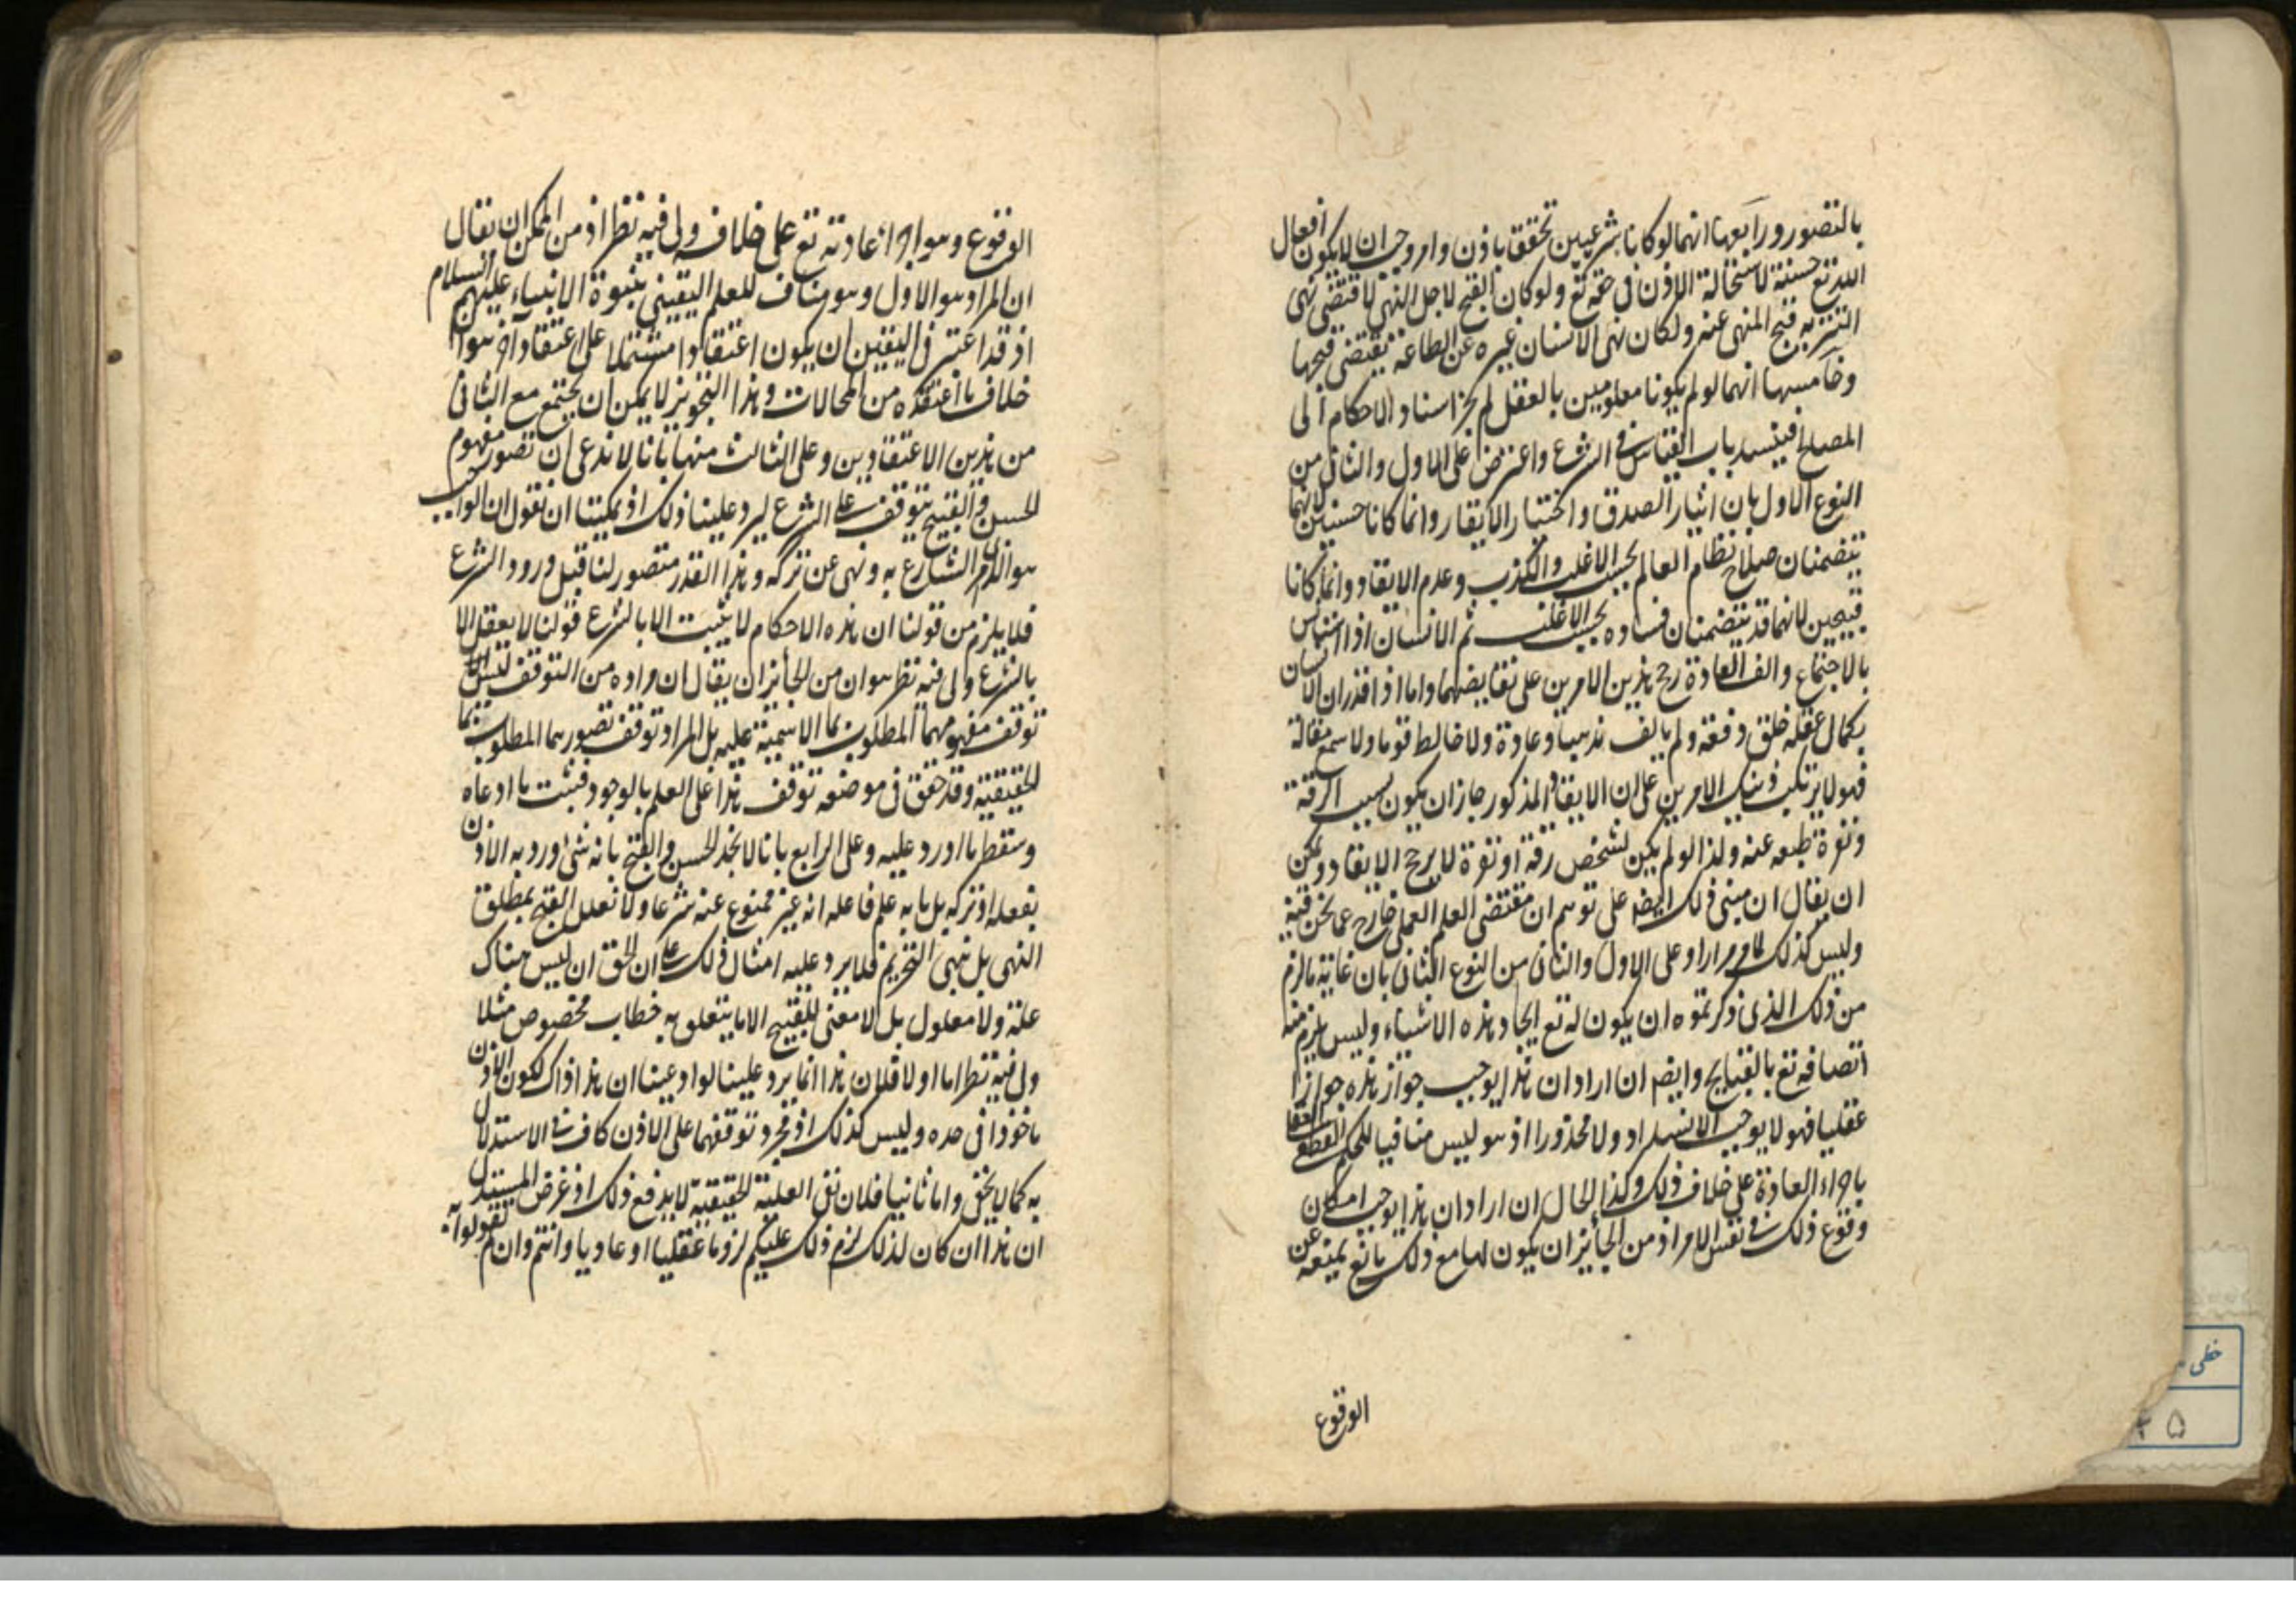 بالتصور ورابعها انهما لو كانا شرعيين تحققا باذن وامر وجب ان لا يكون افعال
الله تع حسنة لاستحالة الاذن في حقه تع ولو كان القبح لاجل النهي لاقتضى نهي
التنزيه قبح المنهي عنه ولكان نهي الانسان غيره عن الطاعة يقتضي قبحها
وخامسها انهما لو لم يكونا معلومين بالعقل لم يجز اسناد الاحكام الى
المصلح فينسد باب القياس في الشرع واعترض على الاول والثاني من
النوع الاول بان ايثار الصدق واختيار الانقاذ وانما كانا حسنين لانهما
يتضمنان صلاح نظام العالم بحسب الاغلب والكذب وعدم الانقاذ وانما كانا
قبيحين لانهما قد يتضمنان فساده بحسب الاغلب ثم الانسان اذا استانس
بالاجتماع والف العادة رجح هذين الامرين على نقايضهما واما اذا قدر ان الانسان
بكمال عقله خلق دفعة ولم يالف مذهبا وعادة ولا خالط قوما ولا سمع مقالة
فهو لا يرتكب ذينك الامرين على ان الانقاذ المذكور جاز ان يكون بسبب الرقة
ونفرة طبعه عنه ولذا لو لم يكن لشخص رقة او نفرة لا يرجح الانقاذ ويمكن
ان يقال ان مبنى ذلك ايضا على توهم ان مقتضى العلم العملي خارج عما نحن فيه
وليس كذلك لما مر مرارا وعلى الاول والثاني من النوع الثاني بان غاية ما لزم
من ذلك الذي ذكرتموه ان يكون له تع ايجاد هذه الاشياء وليس يلزم منه
اتصافه تع بالقبايح وايضا ان اراد ان هذا يوجب جواز هذه جوازا
عقليا فهو لا يوجب الانسداد ولا محذورا اذ هو ليس منافيا للحكم القطعي
باجراء العادة على خلاف ذلك وكذا الحال ان اراد ان هذا يوجب امكان
وقوع ذلك في نفس الامر اذ من الجائز ان يكون لها مع ذلك مانع يمنعه عن
الوقوع
الوقوع وهو اجراء عادته تع على خلافه ولي فيه نظر اذ من الممكن ان يقال
ان المراد هو الاول وهو مناف للعلم اليقيني بنبوة الانبياء عليهم السلام
اذ قد اعتبر في اليقين ان يكون اعتقادا مشتملا على اعتقاد اخر هو ان
خلاف ما اعتقده من المحالات وهذا التجويز لا يمكن ان يجتمع مع الثاني
من هذين الاعتقادين وعلى الثالث منها بانا لا ندعي ان تصور مفهوم
الحسن والقبيح يتوقف على الشرع ليرد علينا ذلك اذ يمكننا ان نقول ان الواجب
هو الذي امر الشارع به ونهى عن تركه وهذا القدر متصور لنا قبل ورود الشرع
فلا يلزم من قولنا ان هذه الاحكام لا يثبت الا بالشرع قولنا لا يعقل الا
بالشرع ولي فيه نظر هو ان من الجائز ان يقال ان مراده من التوقف ليس
توقف مفهومهما المطلوب بما الاسمية عليه بل المراد توقف تصورهما المطلوب بما
الحقيقية وقد حقق في موضعه توقف هذا على العلم بالوجود فيثبت ما ادعاه
وسقط ما اورد عليه وعلى الرابع بانا لا نحد الحسن والقبح بانه شيء ورد به الاذن
بفعله او تركه بل ما به علم فاعله انه غير ممنوع عنه شرعا ولا نعلل القبح بمطلق
النهي بل نهي التحريم فلا يرد عليه امثال ذلك على ان الحق ان ليس هناك
علة ولا معلول بل لا معنى للقبيح الا ما يتعلق به خطاب مخصوص مثلا
ولي فيه نظر اما اولا فلان هذا انما يرد علينا لو ادعينا ان هذا اذ اك لكون الاذن
ماخوذا في حده وليس كذلك اذ مجرد توقفهما على الاذن كاف في الاستدلال
به كما لا يخفى واما ثانيا فلان نفي العلية الحقيقية لا يدفع ذلك اذ غرض المستدل
ان هذا ان كان لذلك لزم ذلك عليكم لزوما عقليا او عاديا وانتم وان لم تقولوا به